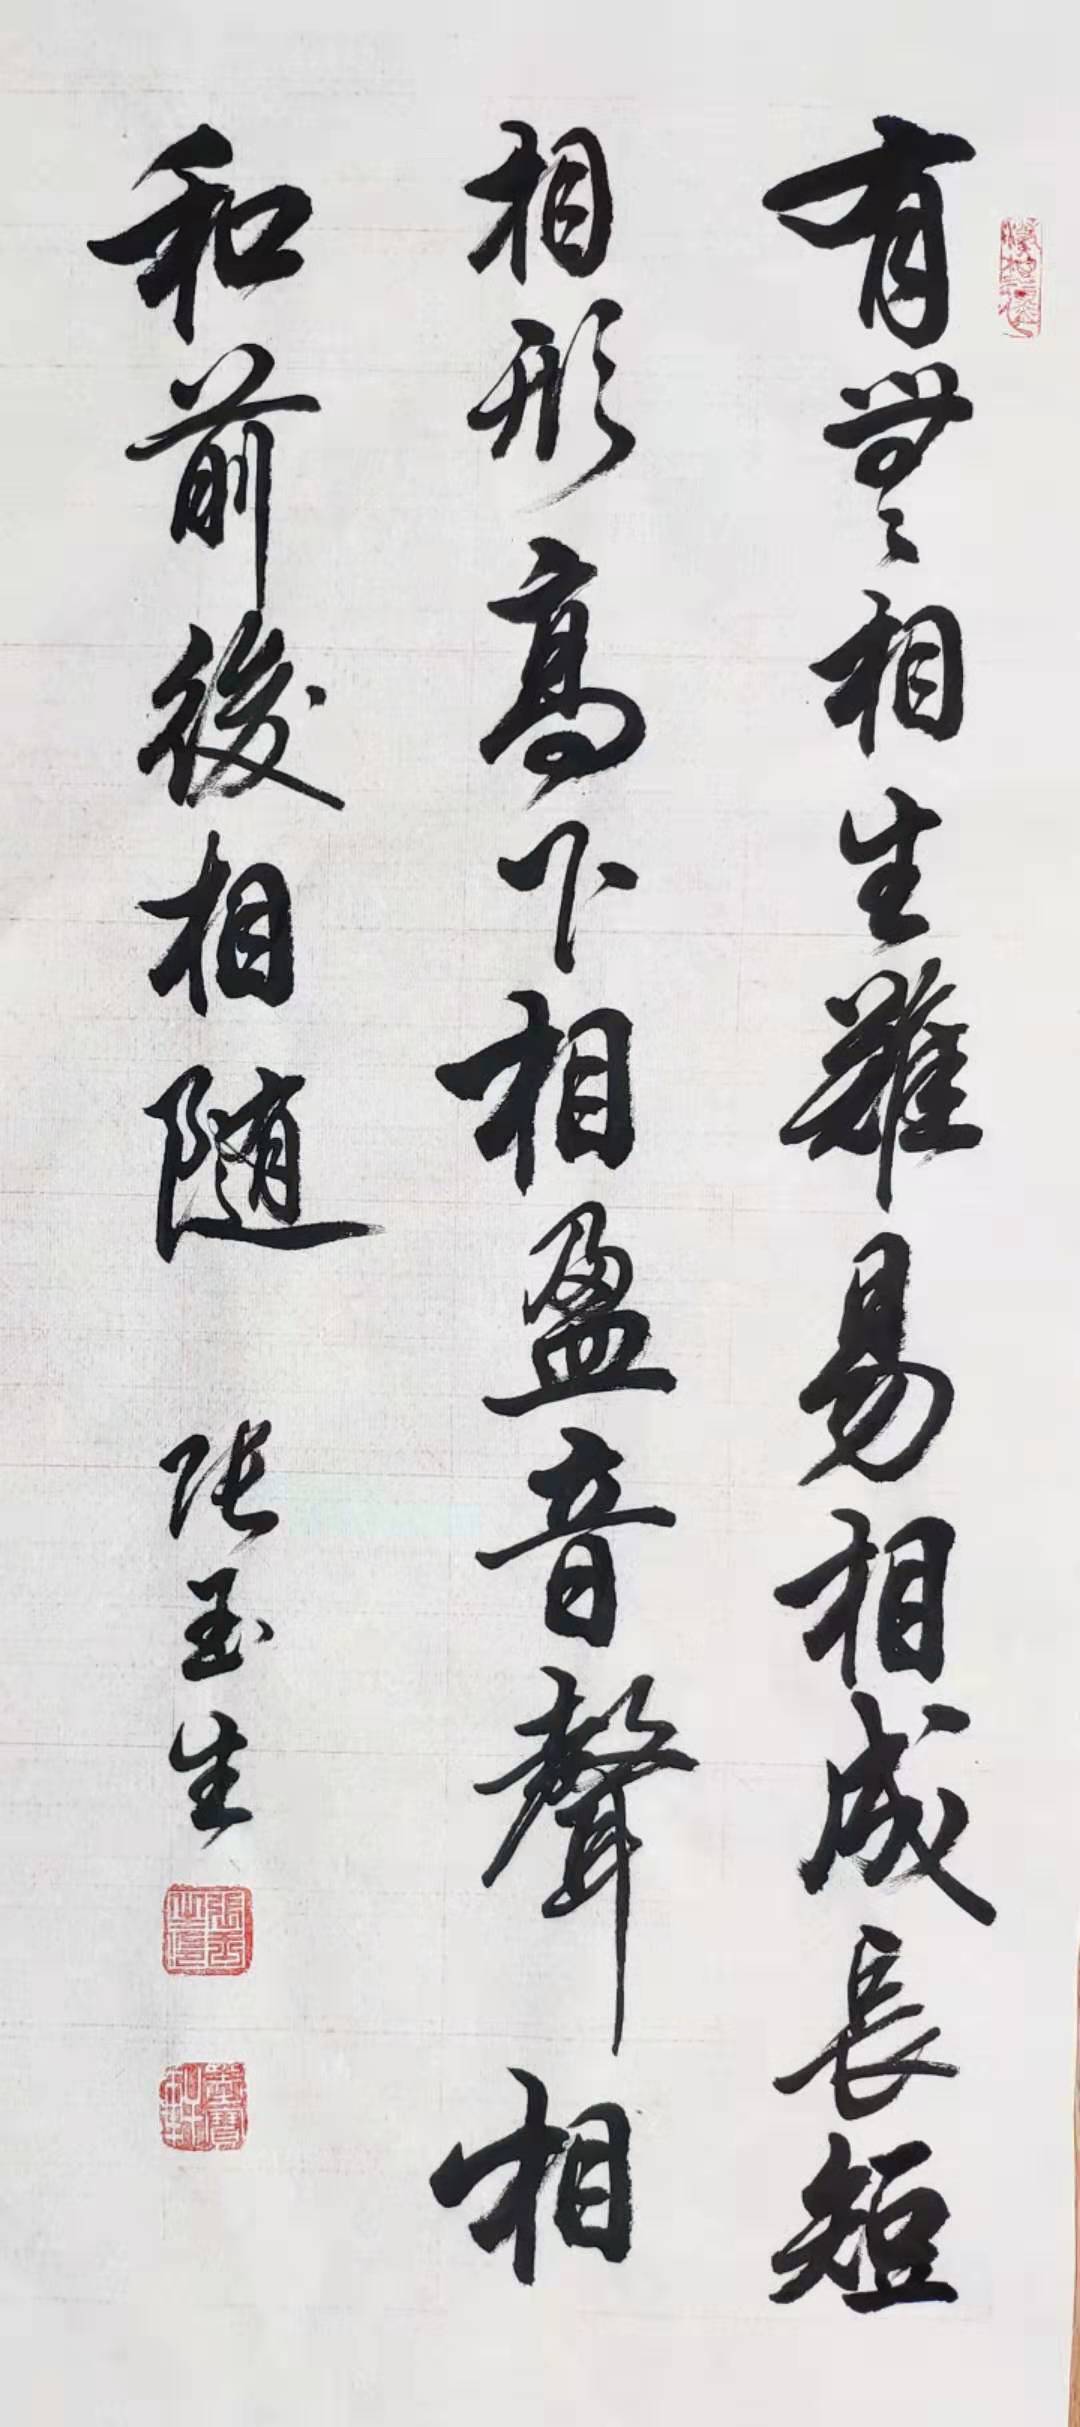 有無相生難易相成長短
相形高下相盈音聲相
和前後相随
张玉生